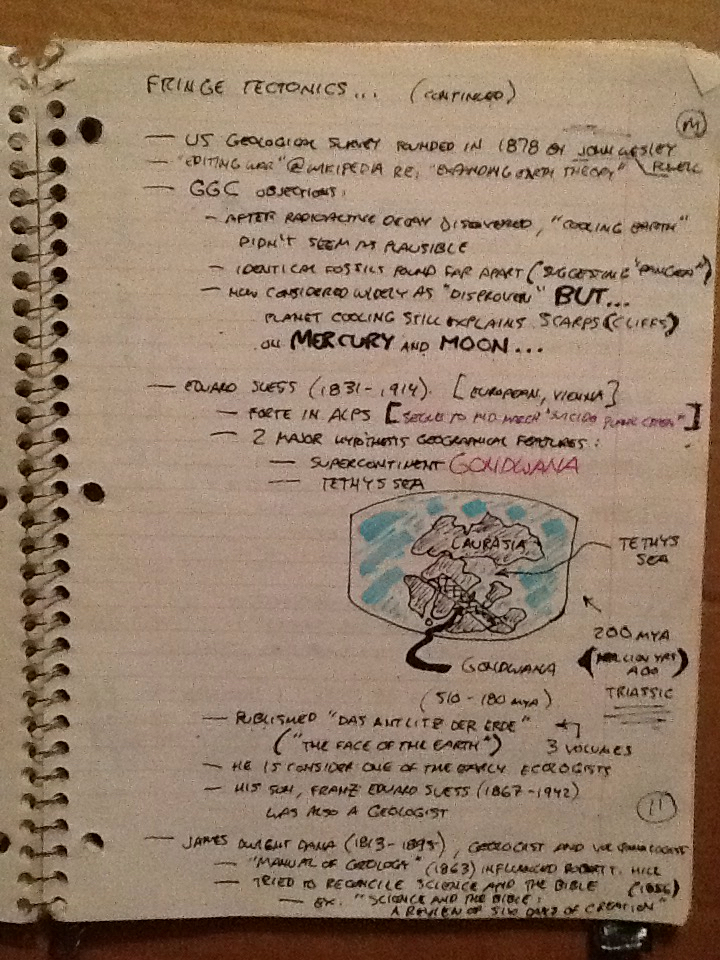 FRINGE TECTONICS... (CONTINUED)
M
— US GEOLOGICAL SURVEY FOUNDED IN 1878 BY JOHN WESLEY POWELL
— "EDITING WAR" @ WIKIPEDIA RE: "EXPANDING EARTH THEORY"
— GGC OBJECTIONS:
— AFTER RADIOACTIVE DECAY DISCOVERED, "COOLING EARTH"
DIDN'T SEEM AS PLAUSIBLE
— IDENTICAL FOSSILS FOUND FAR APART (SUGGESTING "PANGEA")
— NOW CONSIDERED WIDELY AS "DISPROVEN" BUT...
PLANET COOLING STILL EXPLAINS SCARPS (CLIFFS)
ON MERCURY AND MOON...
— EDUARD SUESS (1831-1914). [EUROPEAN, VIENNA]
— FORTE IN ALPS [SEGUE TO MID MARCH "SUICIDE PLANE CRASH"]
— 2 MAJOR HYPOTHESIS GEOGRAPHICAL FEATURES:
— SUPERCONTINENT GONDWANA
— TETHYS SEA
LAURASIA
TETHYS
SEA
200 MYA
(MILLION YRS
AGO)
TRIASSIC
GONDWANA
(510-180 MYA)
— PUBLISHED "DAS ANTLITZ DER ERDE"
("THE FACE OF THE EARTH")
3 VOLUMES
— HE IS CONSIDER ONE OF THE EARLY ECOLOGISTS
— HIS SON, FRANZ EDUARD SUESS (1867-1942)
WAS ALSO A GEOLOGIST
11
— JAMES DWIGHT DANA (1813-1895), GEOLOGIST AND VOLCANOLOGIST
— "MANUAL OF GEOLOGY" (1863) INFLUENCED ROBERT T. HILL
— TRIED TO RECONCILE SCIENCE AND THE BIBLE (1856)
— EX. "SCIENCE AND THE BIBLE:
A REVIEW OF SIX DAYS OF CREATION"